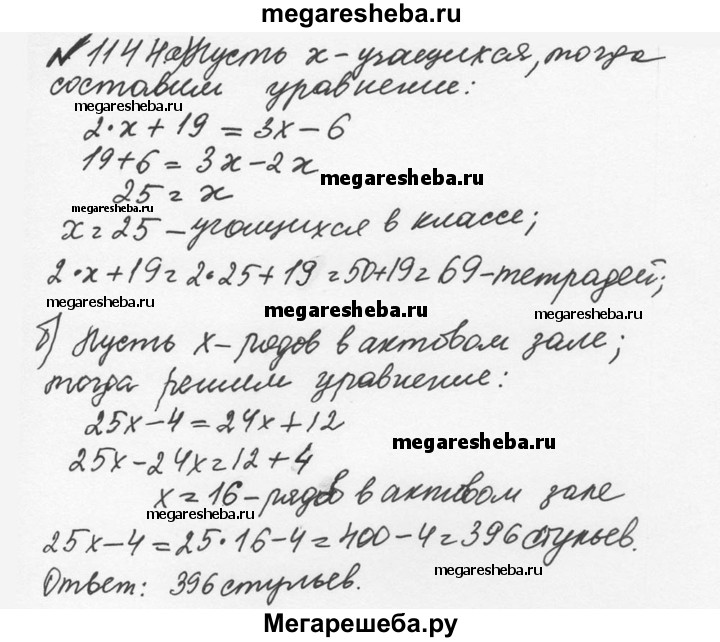 megaresheba.ru
№ 1144 а) Пусть х – учащихся, тогда
составим уравнение:
megaresheba.ru
2·х + 19 = 3х – 6
19 + 6 = 3х – 2х
megaresheba.ru
25 = х
megaresheba.ru
х = 25 – учащихся в классе;
2·х + 19 = 2·25 + 19 = 50 + 19 = 69 – тетрадей;
megaresheba.ru
megaresheba.ru
б) Пусть х – рядов в актовом зале;
тогда решим уравнение:
25х – 4 = 24х + 12
megaresheba.ru
25х – 24х = 12 + 4
х = 16 – рядов в актовом зале
megaresheba.ru
25х – 4 = 25·16 – 4 = 400 – 4 = 396 стульев.
megaresheba.ru
Ответ: 396 стульев.
Мегарешеба.ру